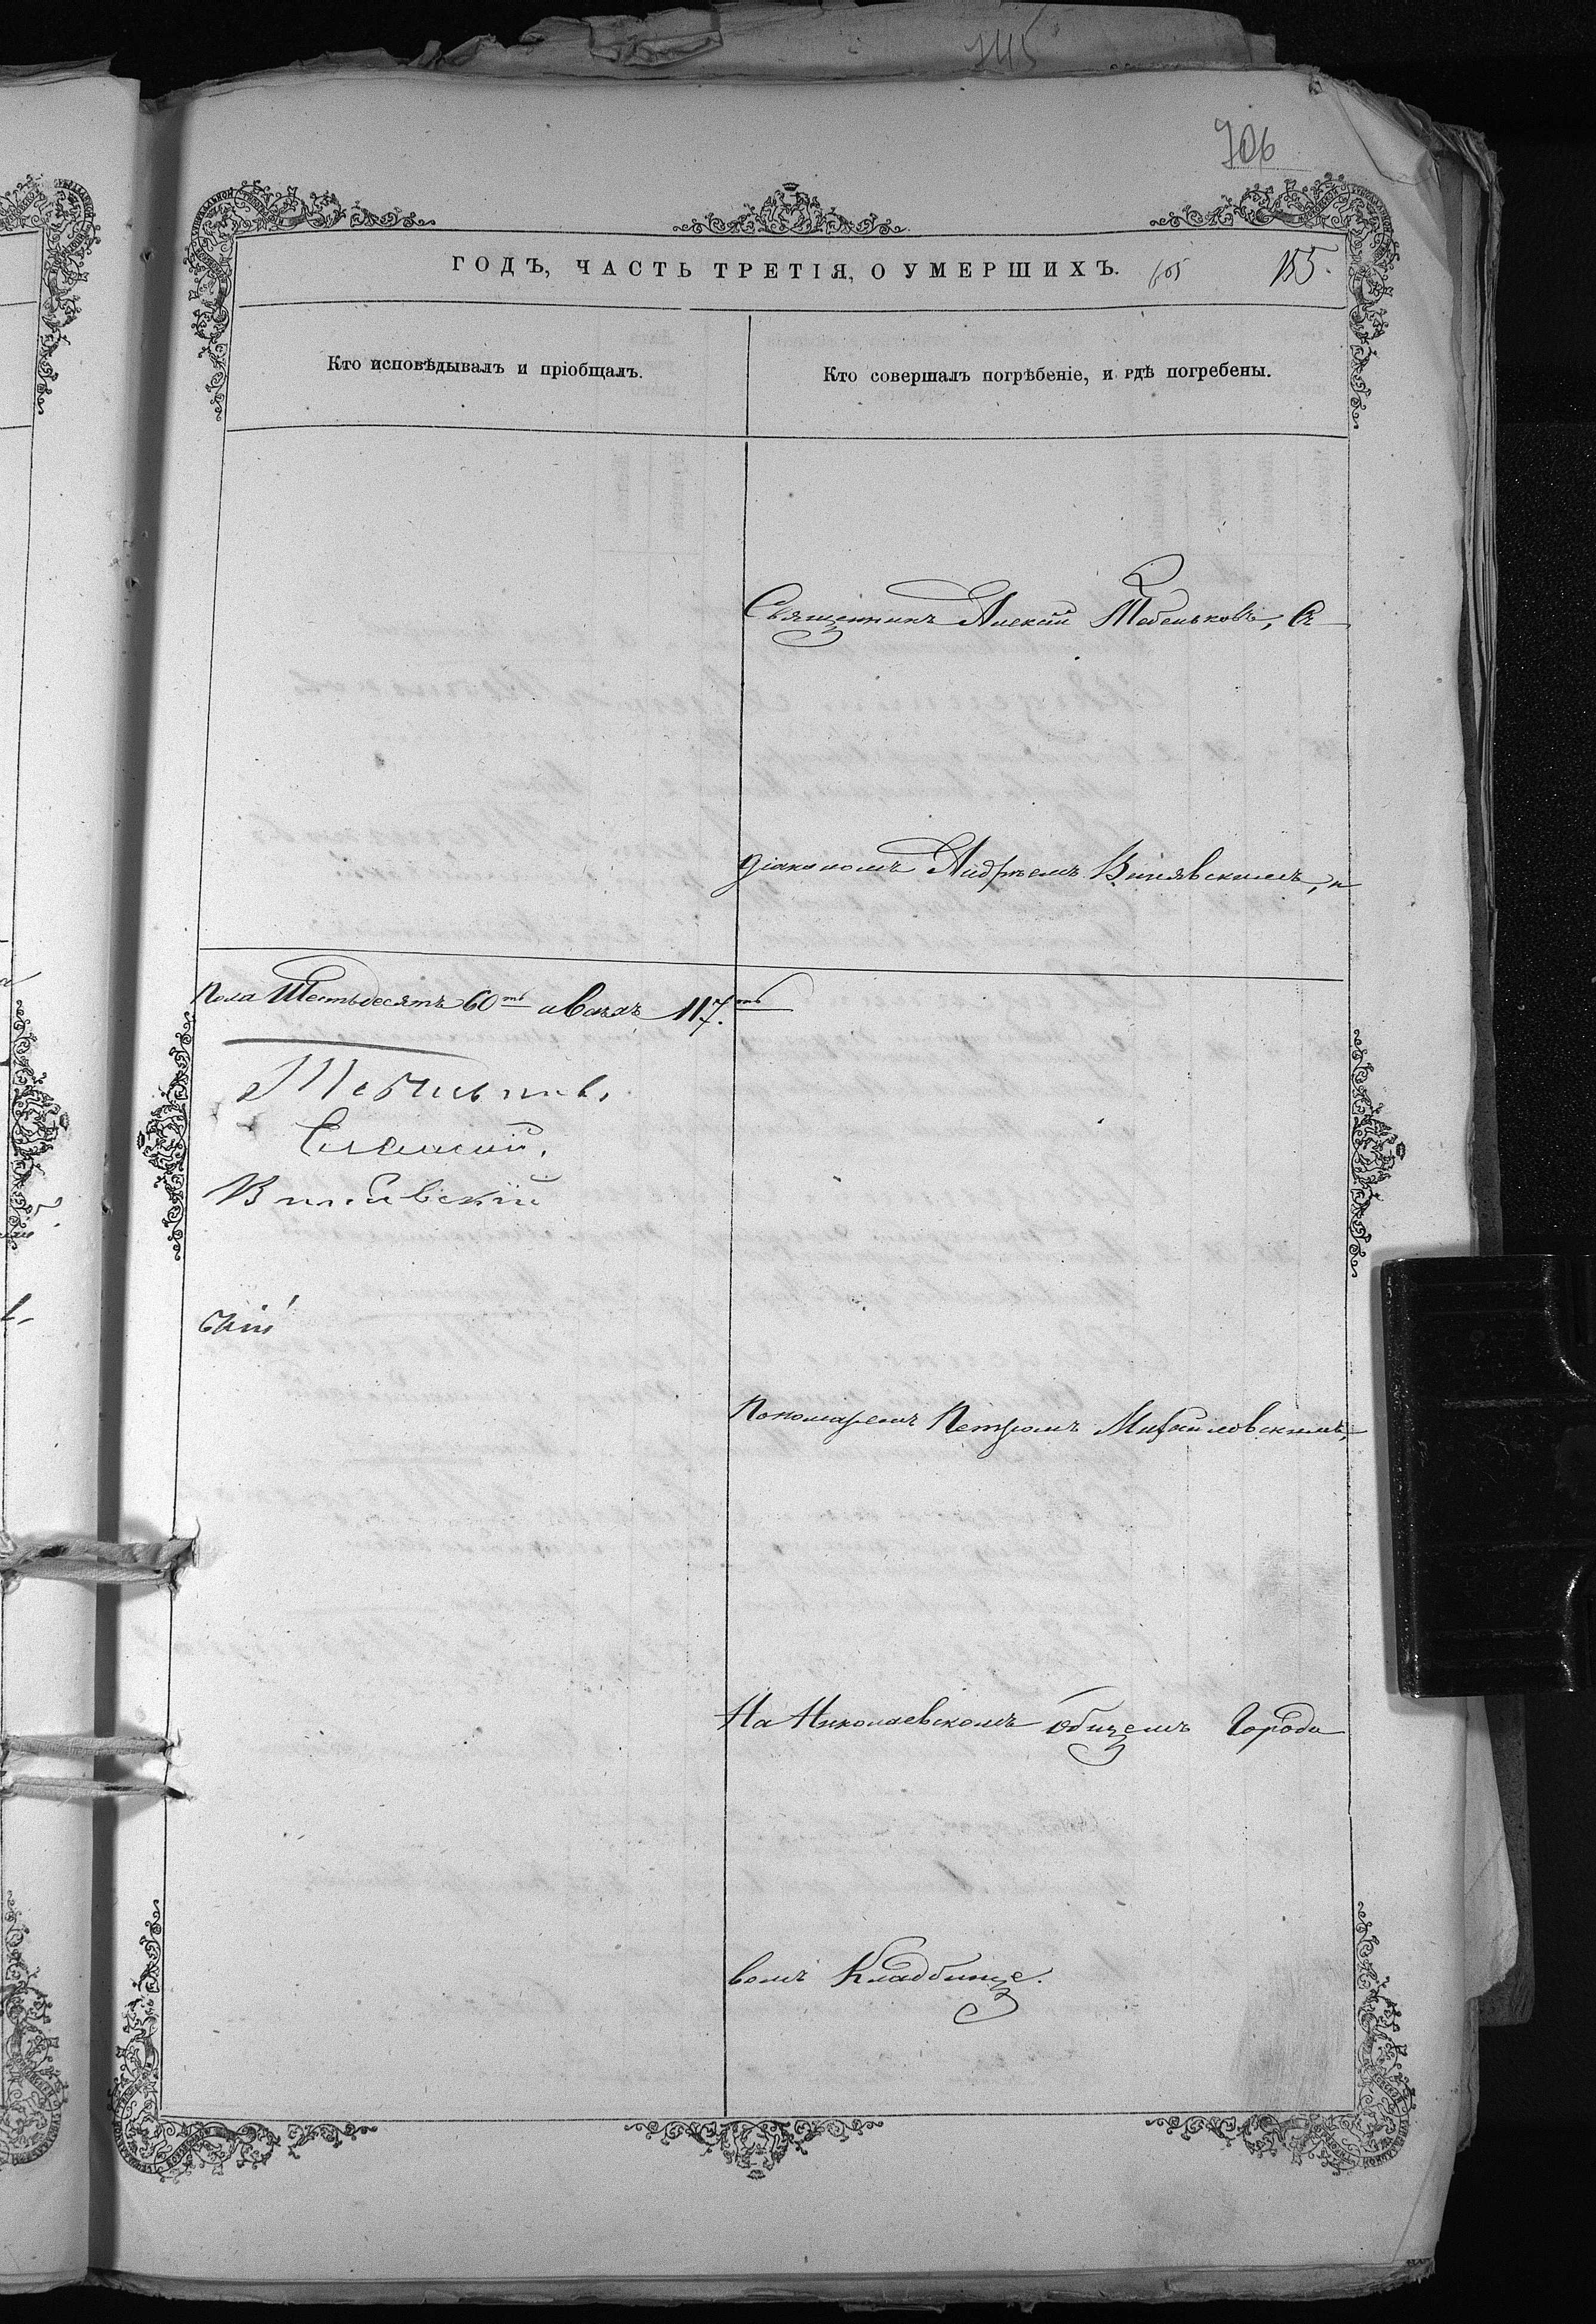 706
ГОДЪ, ЧАСТЬ ТРЕТІЯ, О УМЕРШИХЪ.
155.
Кто исповѣдывалъ и пріобщалъ.
Кто совершалъ погрѣбеніе, и гдѣ погребены.
Священникъ Алексій Тебеньковъ, Съ
Діакономъ Андреемъ Винявскимъ, и
Пола Шестьдесятъ 60тъ а Всѣхъ 117.
Пономаремъ Петромъ Михайловскимъ,
На Николаевскомъ Общемъ Городо
вомъ Кладбище.
скій